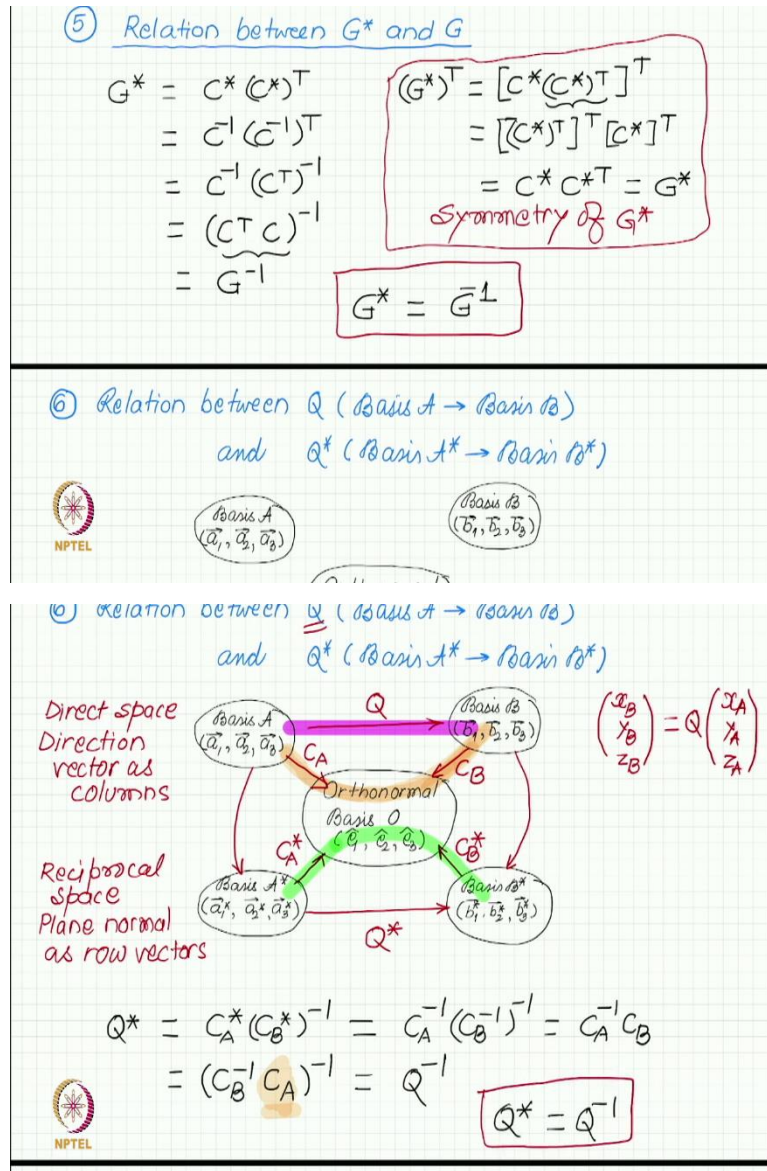 ⑤ Relation between G* and G
G* = C* (C*)ᵀ
= C⁻¹ (C⁻¹)ᵀ
= C⁻¹ (Cᵀ)⁻¹
= (Cᵀ C)⁻¹
= G⁻¹
(G*)ᵀ = [C*(C*)ᵀ]ᵀ
= [(C*)ᵀ]ᵀ [C*]ᵀ
= C* C*ᵀ = G*
Symmetry of G*
G* = G⁻¹
⑥ Relation between Q (Basis A → Basis B)
and Q* (Basis A* → Basis B*)
Basis A
(a⃗₁, a⃗₂, a⃗₃)
Basis B
(b⃗₁, b⃗₂, b⃗₃)
NPTEL
⑥ Relation between Q (Basis A → Basis B)
and Q* (Basis A* → Basis B*)
Direct space
Direction
vector as
columns
Basis A
(a⃗₁, a⃗₂, a⃗₃)
Q
Basis B
(b⃗₁, b⃗₂, b⃗₃)
(x_B y_B z_B) = Q (x_A y_A z_A)
C_A
C_B
Orthonormal
Basis O
(ê₁, ê₂, ê₃)
C_A*
C_B*
Reciprocal
space
Plane normal
as row vectors
Basis A*
(a⃗₁*, a⃗₂*, a⃗₃*)
Q*
Basis B*
(b⃗₁*, b⃗₂*, b⃗₃*)
Q* = C_A* (C_B*)⁻¹ = C_A⁻¹ (C_B⁻¹)⁻¹ = C_A⁻¹ C_B
= (C_B⁻¹ C_A)⁻¹ = Q⁻¹
Q* = Q⁻¹
NPTEL